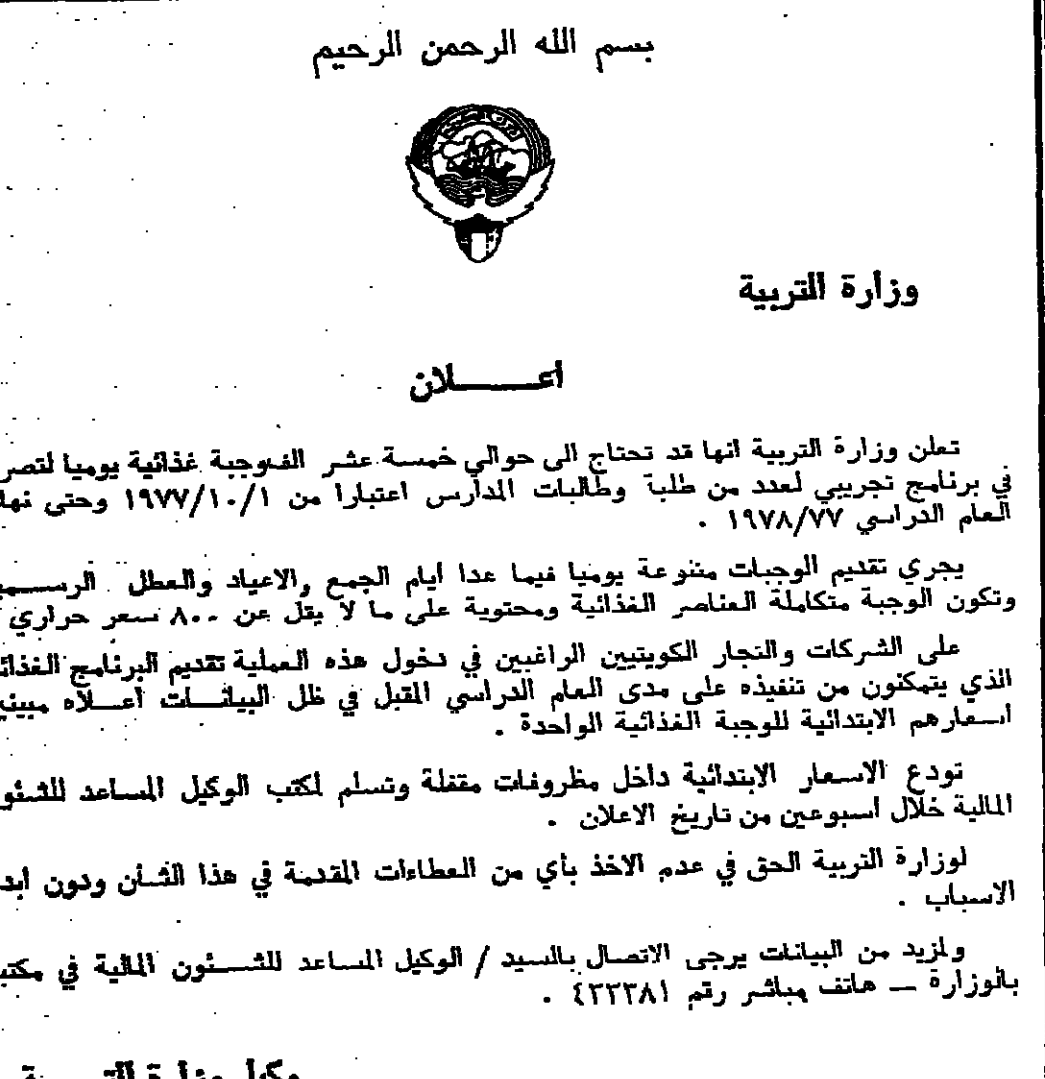 بسم الله الرحمن الرحيم
وزارة التربية
أعـــــلان
تعلن وزارة التربية انها قد تحتاج الى حوالي خمسة عشر الف وجبة غذائية يوميا لتصر
في برنامج تجريبي لعدد من طلبة وطالبات المدارس اعتبارا من ١٩٧٧/١٠/١ وحتى نها
العام الدراسي ١٩٧٨/٧٧ .
يجري تقديم الوجبات متنوعة يوميا فيما عدا أيام الجمع والاعياد والعطل الرســـمي
وتكون الوجبة متكاملة العناصر الغذائية ومحتوية على ما لا يقل عن ٨٠٠ سعر حراري
على الشركات والتجار الكويتيين الراغبين في دخول هذه العملية تقديم البرنامج الغذائ
الذي يتمكنون من تنفيذه على مدى العام الدراسي المقبل في ظل البيانـــات اعـــلاه مبيني
اسعارهم الابتدائية للوجبة الغذائية الواحدة .
تودع الاسعار الابتدائية داخل مظروفات مقفلة وتسلم لمكتب الوكيل المساعد للشئو
المالية خلال اسبوعين من تاريخ الاعلان .
لوزارة التربية الحق في عدم الاخذ بأي من العطاءات المقدمة في هذا الشأن ودون ابد
الاسباب .
ولمزيد من البيانات يرجى الاتصال بالسيد / الوكيل المساعد للشـــئون المالية في مكتب
بالوزارة — هاتف مباشر رقم ٤٢٢٣٨١ .
وكيل وزارة التربية